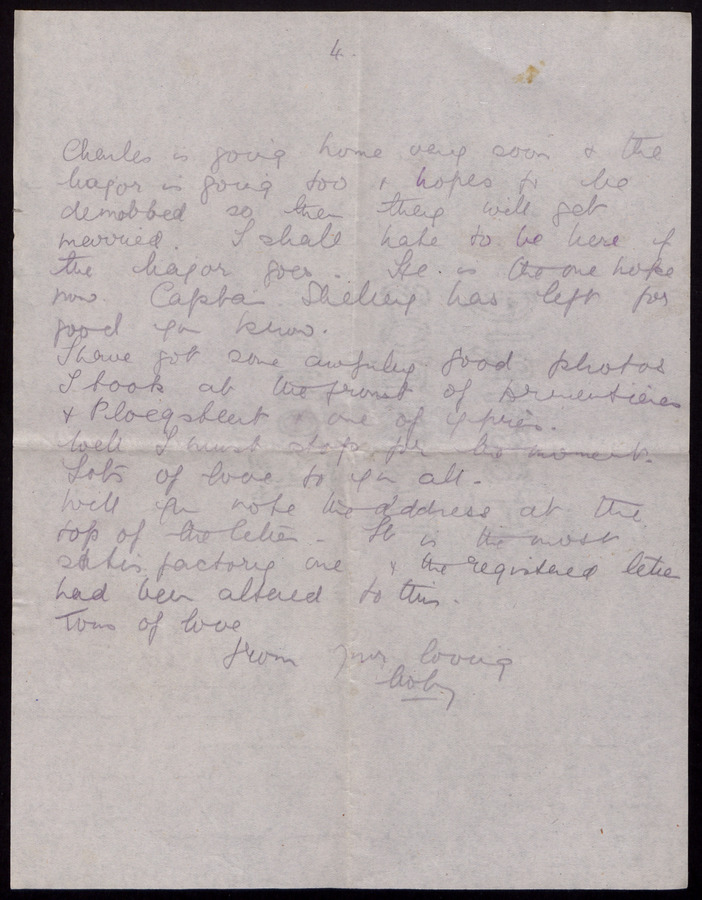 4.
Charles is going home very soon & the
Major is going too & hopes to be
demobbed so then they will get
married. I shall hate to be here if
the Major goes. He is the one hope
now Captain has left for
good you know.
I have got some awfully good photos
I took at the front of Armentieres
& Ploegsteert & one of Ypres.
Well I must stop for the moment.
Lots of love to you all -
Will you note the address at the
top of the letter - It is the most
satisfactory one & the registered letter
had been altered to this.
Tons of love
from your loving